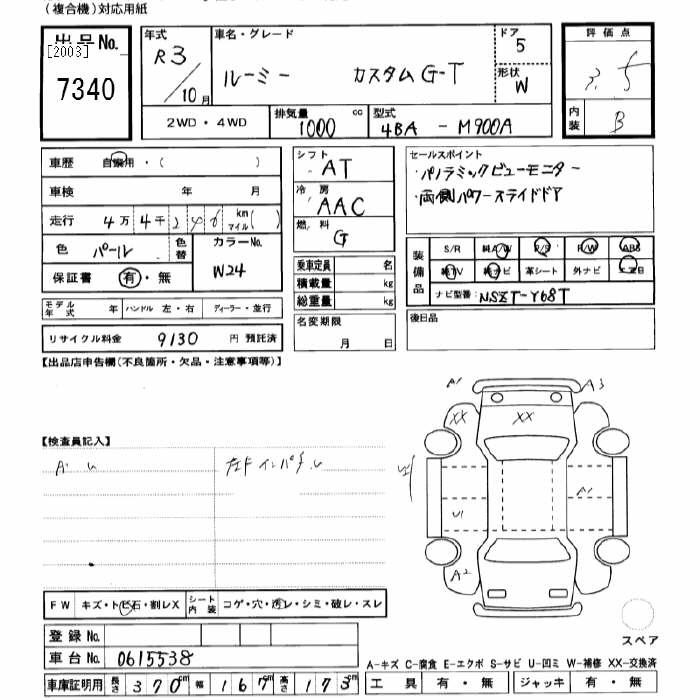 (複合機)対応用紙
出品No.
[2003]
7340
年式
R3/10月
車名・グレード
ルーミー カスタムG-T
ドア
5
形状
W
評価点
3.5
内装
B
2WD・4WD
排気量
1000 cc
型式
4BA - M900A
車歴 自家用・( )
車検 年 月
走行 4万4千246 km マイル( )
色 パール 色替
カラーNo.
W24
保証書 有・無
モデル年式 年 ハンドル 左・右 ディーラー・並行
リサイクル料金 9130 円 預託済
シフト
AT
冷房
AAC
燃料
G
乗車定員 名
積載量 kg
総重量 kg
名変期限
月 日
セールスポイント
・パノラミックビューモニター
・両側パワースライドドア
装備品
S/R 純A/W P/S P/W ABS
純TV 純ナビ 革シート 外ナビ エアB
ナビ型番: NSZT-Y68T
後日品
【出品店申告欄(不良箇所・欠品・注意事項等)】
【検査員記入】
A・U
A1
A3
XX
XX
A1
U1
A2
FW キズ・トビ石・割レX シート内装 コゲ・穴・スレ・シミ・破レ・スレ
登録No.
車台No. 0615538
スペア
A-キズ C-腐食 E-エクボ S-サビ U-凹ミ W-補修 XX-交換済
車庫証明用 長さ 370cm 幅 167cm 高さ 173cm
工具 有・無 ジャッキ 有・無